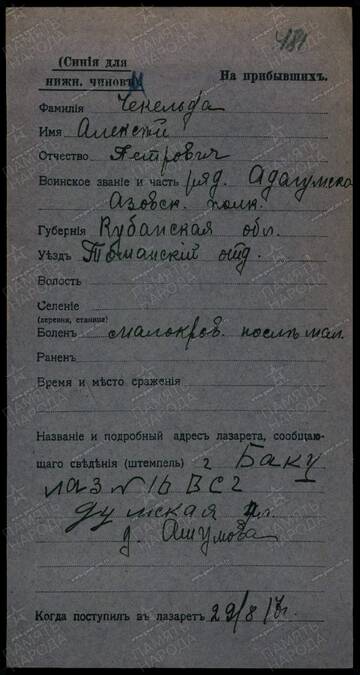 481
(Синія для
нижн. чиновъ)
На прибывшихъ.
Фамилія Чекельда
Имя Алексѣй
Отчество Петрович
Воинское званіе и часть ряд. Адагумско
Азовск. полк.
Губернія Кубанская обл.
Уѣздъ Таманскій отд.
Волость
Селеніе
(деревня, станица)
Боленъ малокров. послѣ мал.
Раненъ
Время и мѣсто сраженія
Названіе и подробный адресъ лазарета, сообщаю-
щаго свѣдѣнія (штемпель) г Баку
лаз N 16 ВСГ
Думская пл.
д. Ашумова
Когда поступилъ въ лазаретъ 29/8 17г.